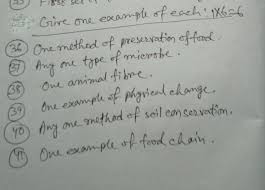 (35)
Give one example of each : 1x6=6
(36) One method of preservation of food.
(37) Any one type of microbe.
(38) One animal fibre.
(39) One example of physical change.
(40) Any one method of soil conservation.
(41) One example of food chain.